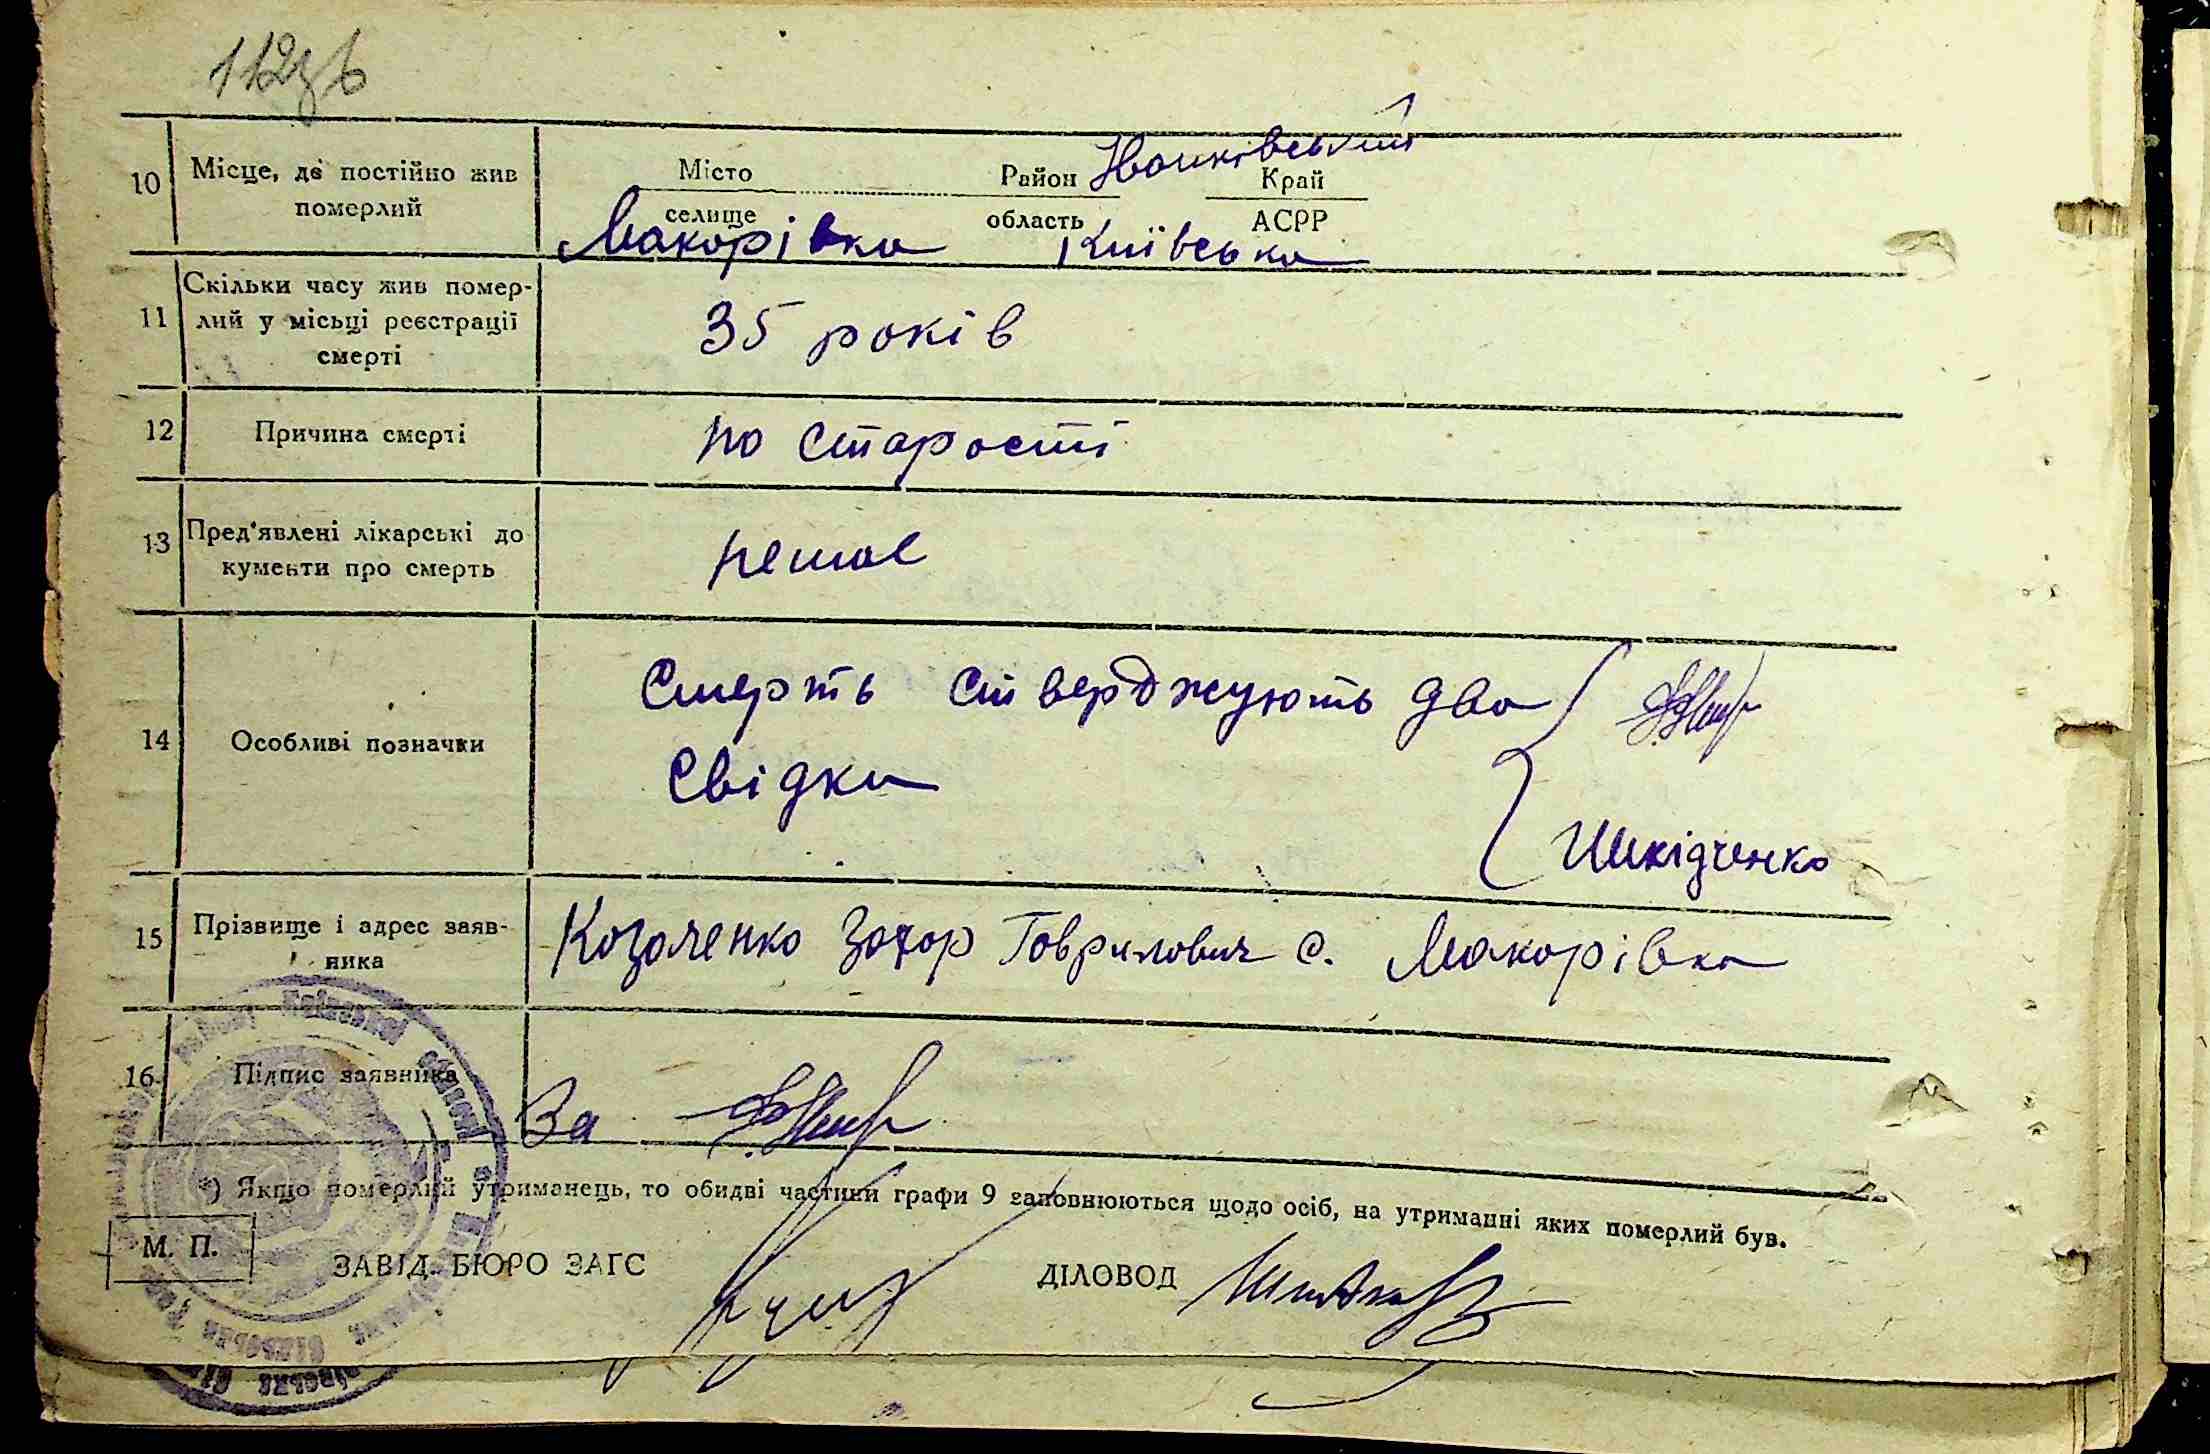 112зв
10 Місце, де постійно жив Місто Район Іванківський Край
померлий селище область АСРР
Макорівка Київська
Скільки часу жив помер-
11 лий у місьці реєстрації 35 років
смерті
12 Причина смерті по старості
13 Пред'явлені лікарські до
кументи про смерть немає
Смерть стверджують два
14 Особливі позначки
Свідки
Шкідченко
15 Прізвище і адрес заяв-
ника Козаченко Захар Гаврилович с. Макорівка
16 Підпис заявника За
*) Якщо померлий утриманець, то обидві частини графи 9 заповнюються щодо осіб, на утриманні яких померлий був.
М. П. ЗАВІД. БЮРО ЗАГС ДІЛОВОД